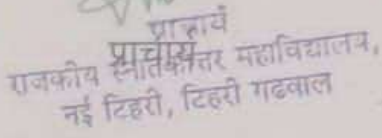 प्राचार्य
प्राचार्य
राजकीय स्नातकोत्तर महाविद्यालय,
नई टिहरी, टिहरी गढवाल